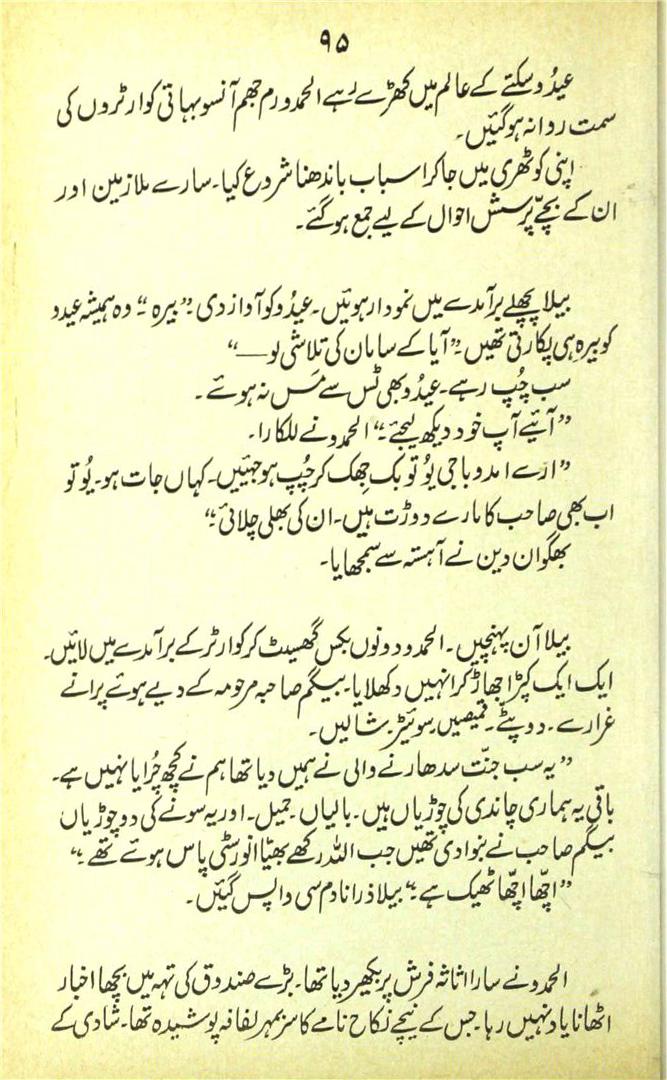 ۹۵
عیدُو سکتے کے عالم میں کھڑے رہے الحمدو رم جھم آنسو بہاتی کوارٹروں کی
سمت روانہ ہو گئیں۔
اپنی کوٹھری میں جا کر اسباب باندھنا شروع کیا۔ سارے ملازمین اور
ان کے بچّے پُرسشِ احوال کے لیے جمع ہو گئے۔
بیلا پچھلے برآمدے میں نمودار ہوئیں۔ عیدُو کو آواز دی۔ ”بیرہ“۔ وہ ہمیشہ عیدو
کو بیرہ ہی پکارتی تھیں۔ ”آیا کے سامان کی تلاشی لو—“
سب چُپ رہے۔ عیدُو بھی ٹس سے مَس نہ ہوئے۔
”آیئے آپ خود دیکھ لیجئے۔“ الحمدو نے للکارا۔
”ارے امدو باجی یُو تو بک جھک کر چُپ ہو جہئیں۔ کہاں جات ہو۔ یُو تو
اب بھی صاحب کا مارے دوڑت ہیں۔ ان کی بھلی چلائی۔“
بھگوان دین نے آہستہ سے سمجھایا۔
بیلا آن پہنچیں۔ الحمدو دونوں بکس گھسیٹ کر کوارٹر کے برآمدے میں لائیں۔
ایک ایک کپڑا جھاڑ کر انہیں دکھلایا۔ بیگم صاحبہ مرحومہ کے دیے ہوئے پرانے
غرارے۔ دوپٹے۔ قمیصیں۔ سوئیٹر۔ شالیں۔
”یہ سب جنّت سدھارنے والی نے ہمیں دیا تھا ہم نے کچھ چُرایا نہیں ہے۔
باقی یہ ہماری چاندی کی چوڑیاں ہیں۔ بالیاں۔ جھیل۔ اور یہ سونے کی دو چوڑیاں
بیگم صاحب نے بنوا دی تھیں جب اللہ رکھے بھیّا انورسٹی پاس ہوئے تھے۔“
”اچّھا اچّھا ٹھیک ہے۔“ بیلا ذرا نادم سی واپس گئیں۔
الحمدو نے سارا اثاثہ فرش پر بکھیر دیا تھا۔ بڑے صندوق کی تہہ میں بچھا اخبار
اٹھانا یاد نہیں رہا۔ جس کے نیچے نکاح نامے کا سر بمہر لفافہ پوشیدہ تھا۔ شادی کے